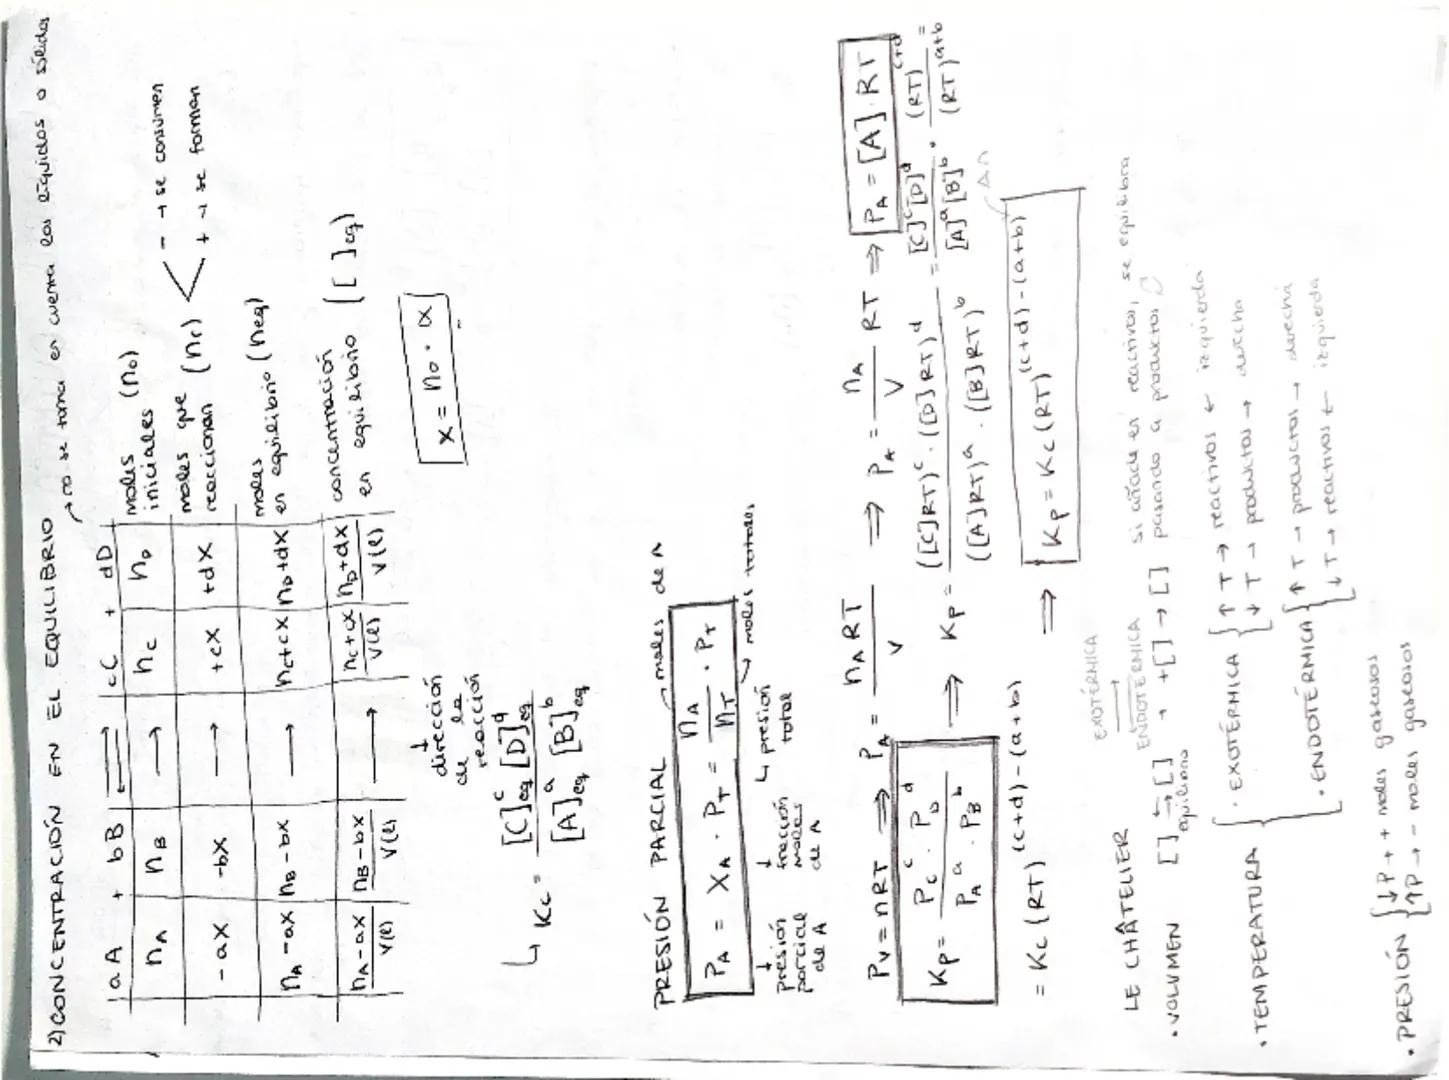 2) CONCENTRACIÓN EN EL EQUILIBRIO → no se toma en cuenta los líquidos o sólidos
aA + bB ⇌ cC + dD
nA nB → nC nD moles iniciales (no)
-ax -bx → +cx +dx moles que reaccionan (nr) < - → se consumen
+ → se forman
nA-ax nB-bx → nC+cx nD+dx moles en equilibrio (neq)
nA-ax/V(l) nB-bx/V(l) → nC+cx/V(l) nD+dx/V(l) concentración en equilibrio ([ ]eq)
↓ dirección de la reacción
x = no · α
↳ Kc = [C]eq^c [D]eq^d / [A]eq^a [B]eq^b
PRESIÓN PARCIAL
moles de A
PA = XA · PT = nA/nT · PT
↓ presión parcial de A
↓ fracción molar de A
↳ presión total
↘ moles totales
PV = nRT ⇒ PA = nA RT / V ⇒ PA = nA/V RT ⇒ PA = [A] · RT
Kp = Pc^c · PD^d / PA^a · PB^b ⇒ Kp = ([C]RT)^c · ([D]RT)^d / ([A]RT)^a · ([B]RT)^b = [C]^c [D]^d / [A]^a [B]^b · (RT)^c+d / (RT)^a+b =
= Kc (RT)^(c+d)-(a+b) ⇒ Kp = Kc (RT)^(c+d)-(a+b)
Δn
LE CHÂTELIER
EXOTÉRMICA
ENDOTÉRMICA
· VOLUMEN [ ] ⇄ [ ] → +[ ] → [ ] si añade en reactivos, se equilibra pasando a productos
equilibrio
· TEMPERATURA { · EXOTÉRMICA { ↑ T → reactivos ← izquierda
↓ T → productos → derecha
· ENDOTÉRMICA { ↑ T → productos → derecha
↓ T → reactivos ← izquierda
· PRESIÓN { ↓P → + moles gaseosos
↑P → - moles gaseosos